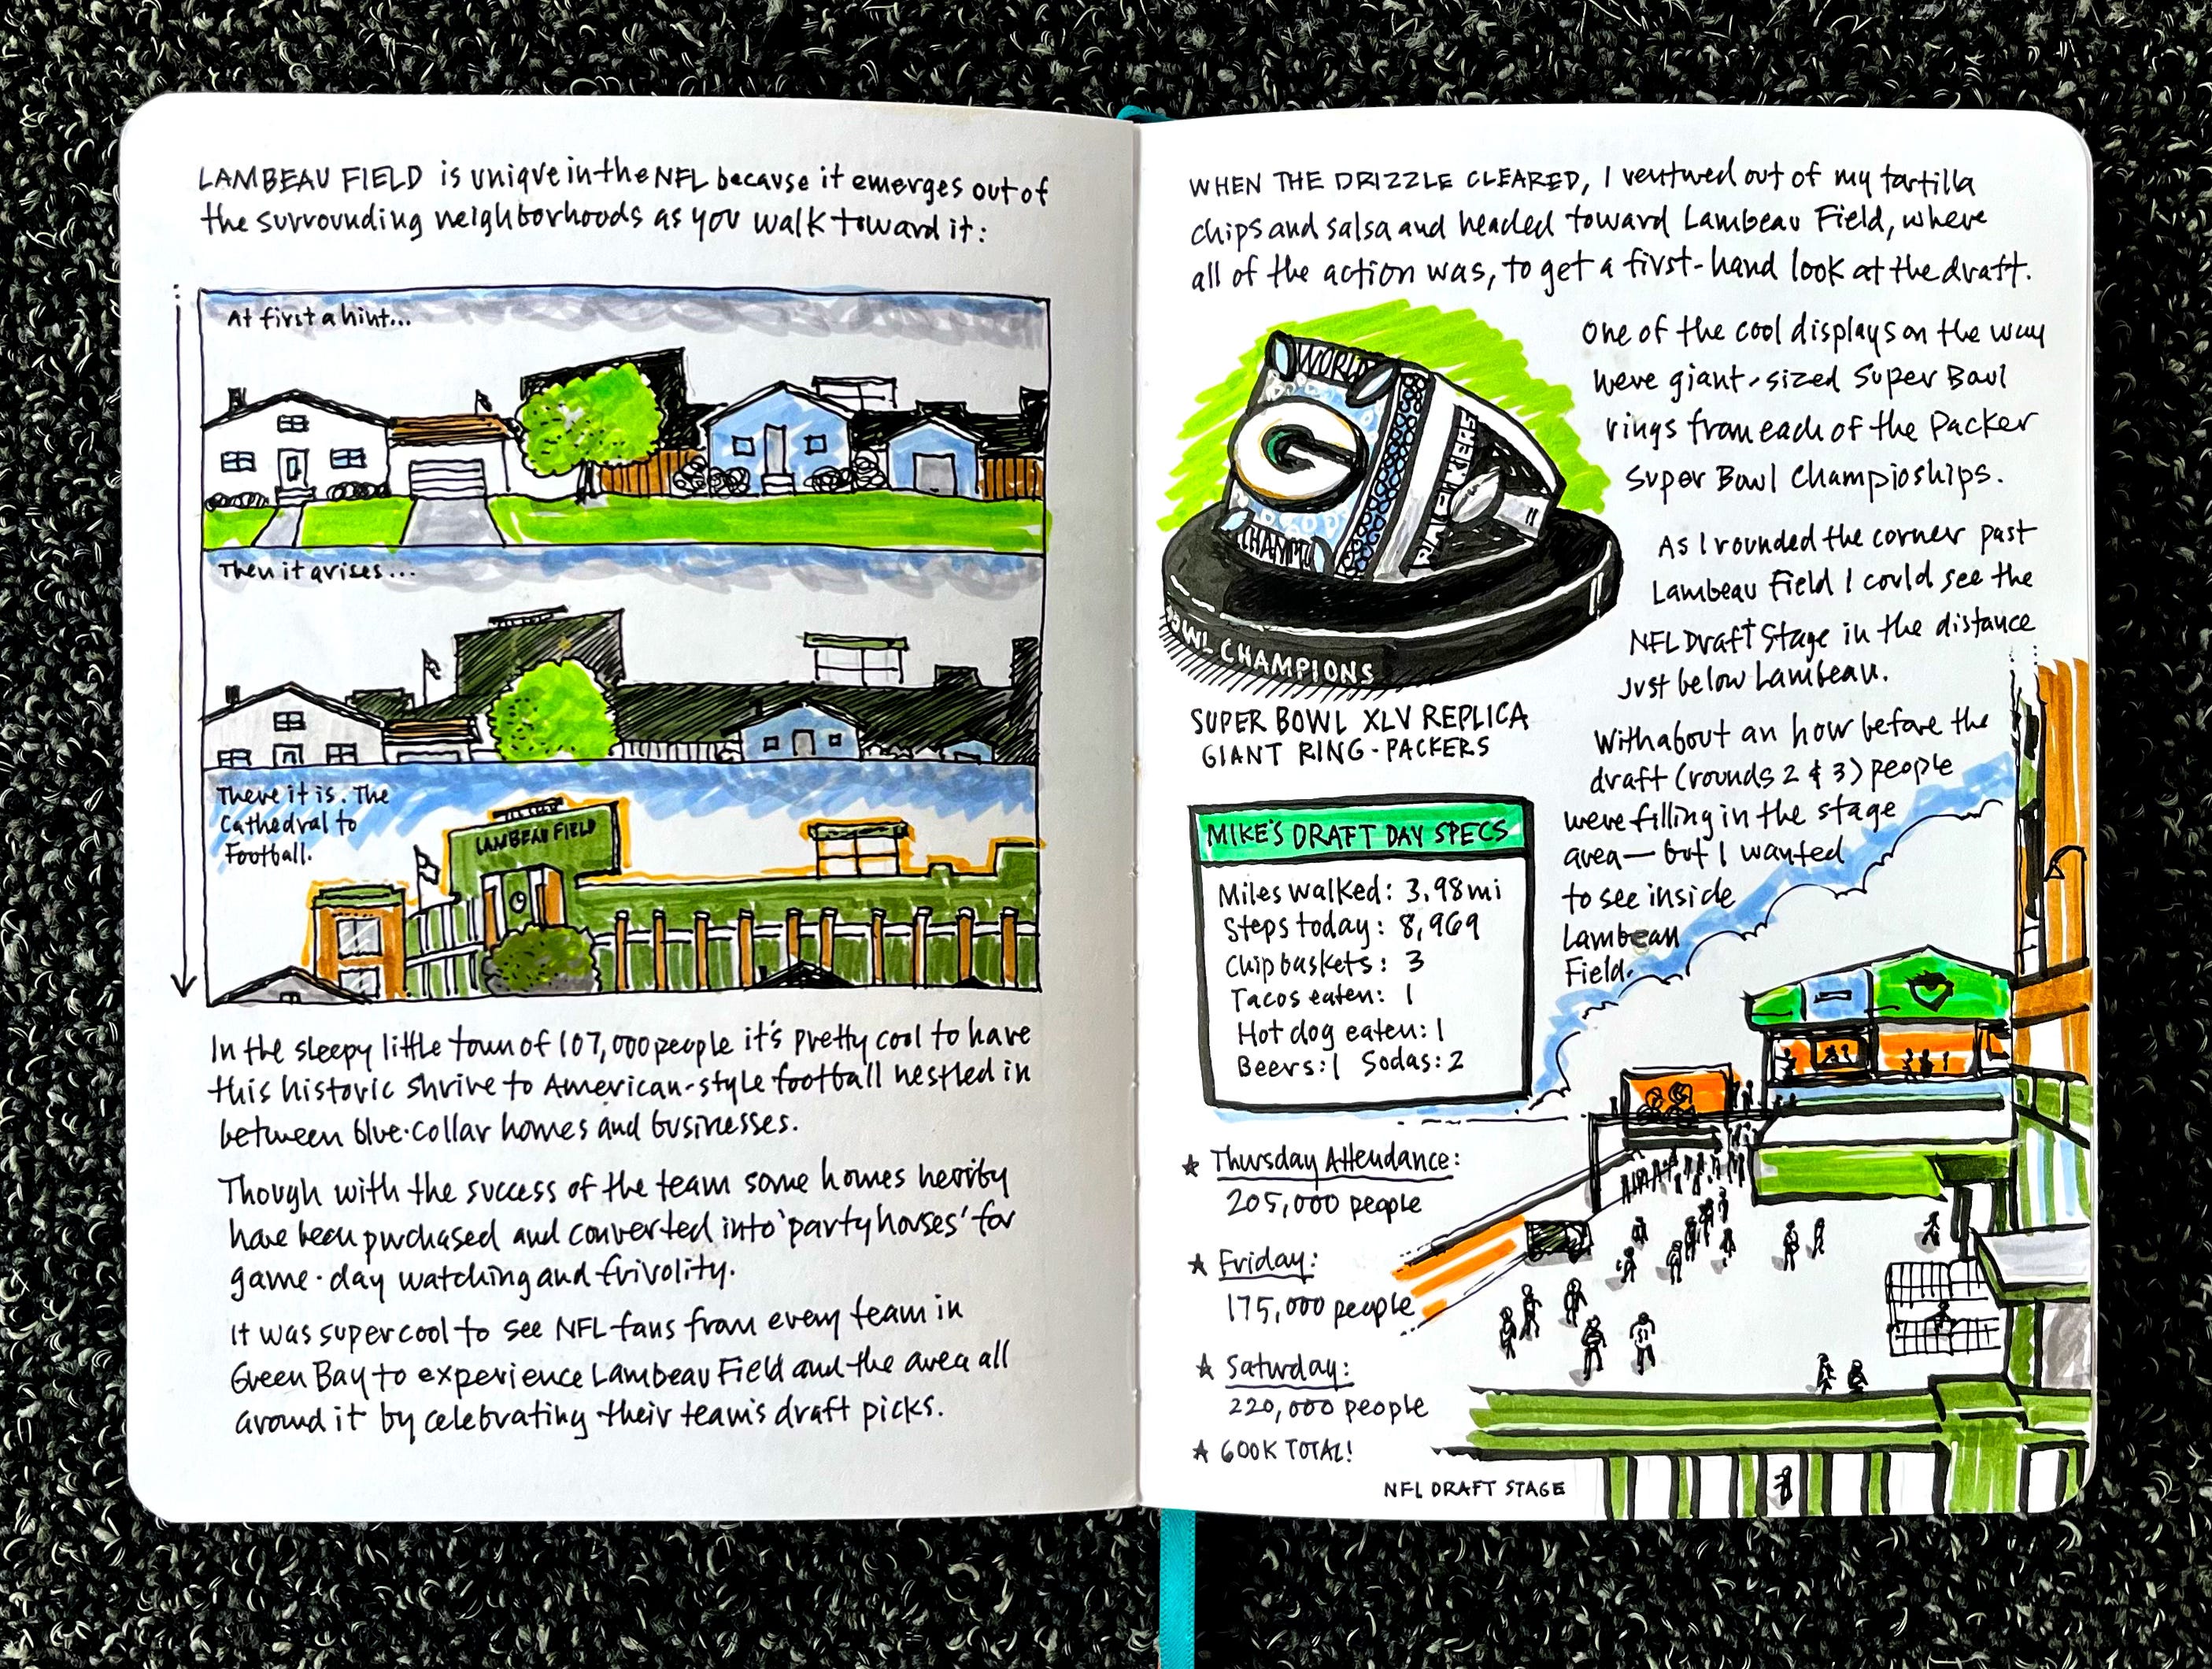 LAMBEAU FIELD is unique in the NFL because it emerges out of
the surrounding neighborhoods as you walk toward it:
At first a hint...
Then it arises...
There it is. The
Cathedral to
Football.
LAMBEAU FIELD
In the sleepy little town of 107,000 people it's pretty cool to have
this historic shrive to American-style football nestled in
between blue-collar homes and businesses.
Though with the success of the team some homes nearby
have been purchased and converted into 'party houses' for
game-day watching and frivolity.
It was super cool to see NFL fans from every team in
Green Bay to experience Lambeau Field and the area all
around it by celebrating their team's draft picks.
WHEN THE DRIZZLE CLEARED, I ventured out of my tortilla
chips and salsa and headed toward Lambeau Field, where
all of the action was, to get a first-hand look at the draft.
WORLD
G
CHAMPIO
OWL CHAMPIONS
SUPER BOWL XLV REPLICA
GIANT RING - PACKERS
One of the cool displays on the way
were giant-sized Super Bowl
rings from each of the Packer
Super Bowl Champioships.
As I rounded the corner past
Lambeau Field I could see the
NFL Draft Stage in the distance
just below Lambeau.
With about an hour before the
draft (rounds 2 & 3) people
were filling in the stage
area — but I wanted
to see inside
Lambeau
Field.
MIKE'S DRAFT DAY SPECS
Miles walked: 3.98mi
Steps today: 8,969
Chip baskets: 3
Tacos eaten: 1
Hot dog eaten: 1
Beers: 1 Sodas: 2
★ Thursday Attendance:
205,000 people
★ Friday:
175,000 people
★ Saturday:
220,000 people
★ 600K TOTAL!
NFL DRAFT STAGE